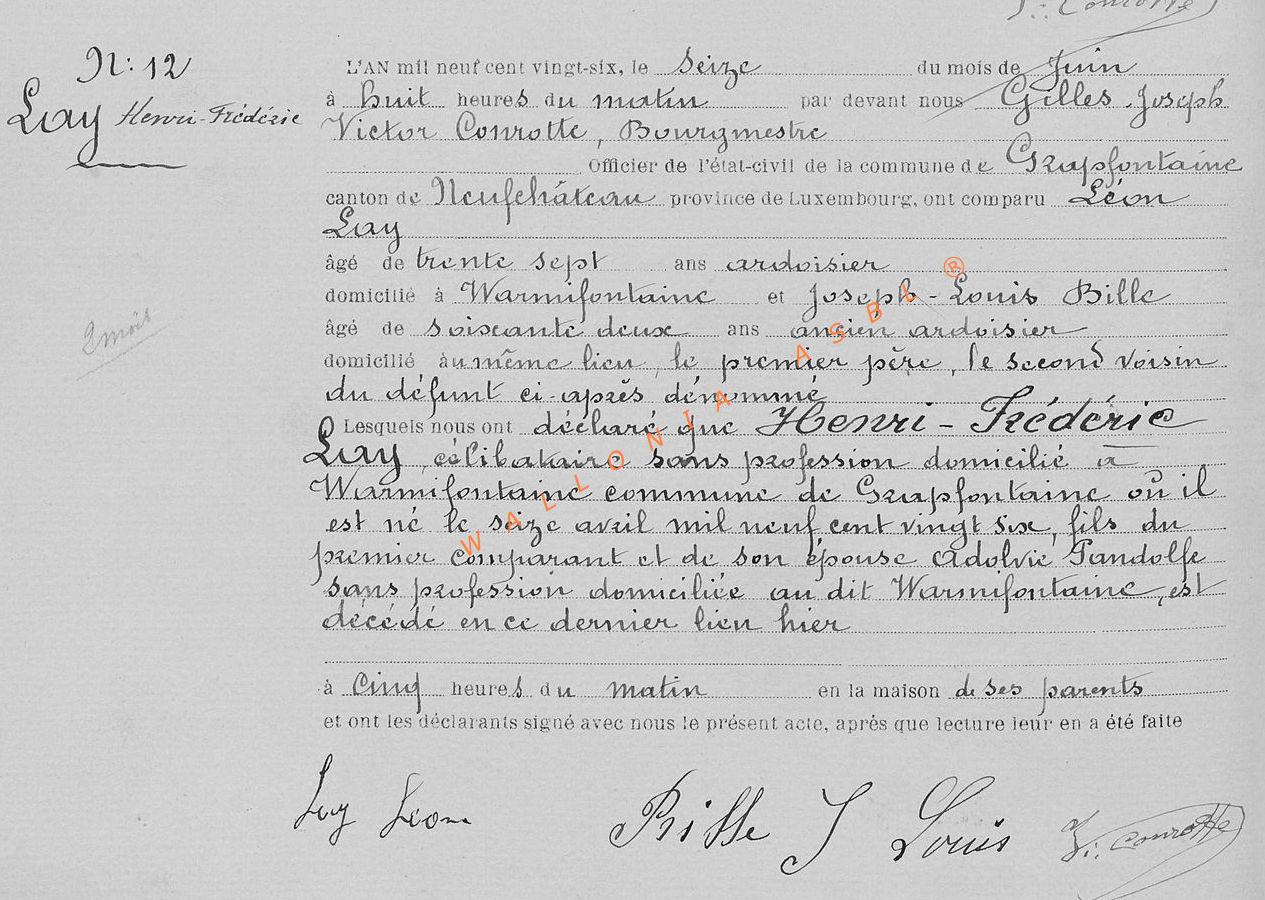 J: Conrotte
N: 12
Lay Henri-Frédéric
L'AN mil neuf cent vingt-six, le Seize du mois de Juin
à huit heures du matin par devant nous Gilles Joseph
Victor Conrotte, Bourgmestre
Officier de l'état-civil de la commune de Grapfontaine
canton de Neufchâteau province de Luxembourg, ont comparu Léon
Lay
âgé de trente sept ans ardoisier
domicilié à Warmifontaine et Joseph-Louis Bille
âgé de soixante deux ans ancien ardoisier
2 mois
domicilié au même lieu, le premier père, le second voisin
du défunt ci-après dénommé
Lesquels nous ont déclaré que Henri-Frédéric
Lay, célibataire sans profession domicilié à
Warmifontaine commune de Grapfontaine où il
est né le seize avril mil neuf cent vingt six, fils du
premier comparant et de son épouse Adolvie Pandolfe
sans profession domiciliée au dit Warmifontaine, est
décédé en ce dernier lieu hier
à cinq heures du matin en la maison de ses parents
et ont les déclarants signé avec nous le présent acte, après que lecture leur en a été faite
Lay Leon Bille J Louis V: Conrotte
WALLONIA ASBL ®